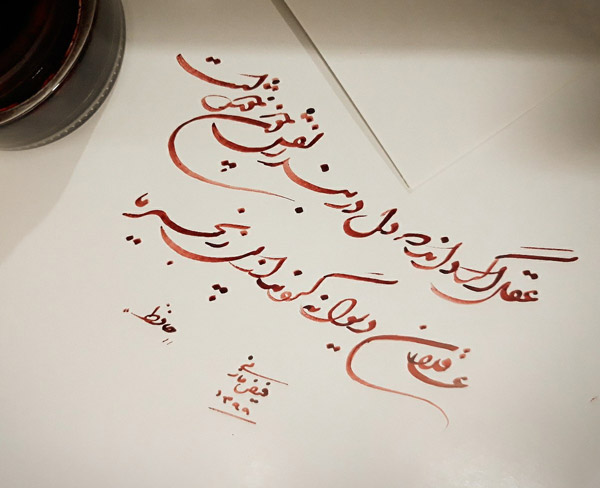 عقل اگر داند که دل در بند زلفش چون خوشست
عاقلان دیوانه گردند از پی زنجیر ما
"حافظ"
۱۳۹۹